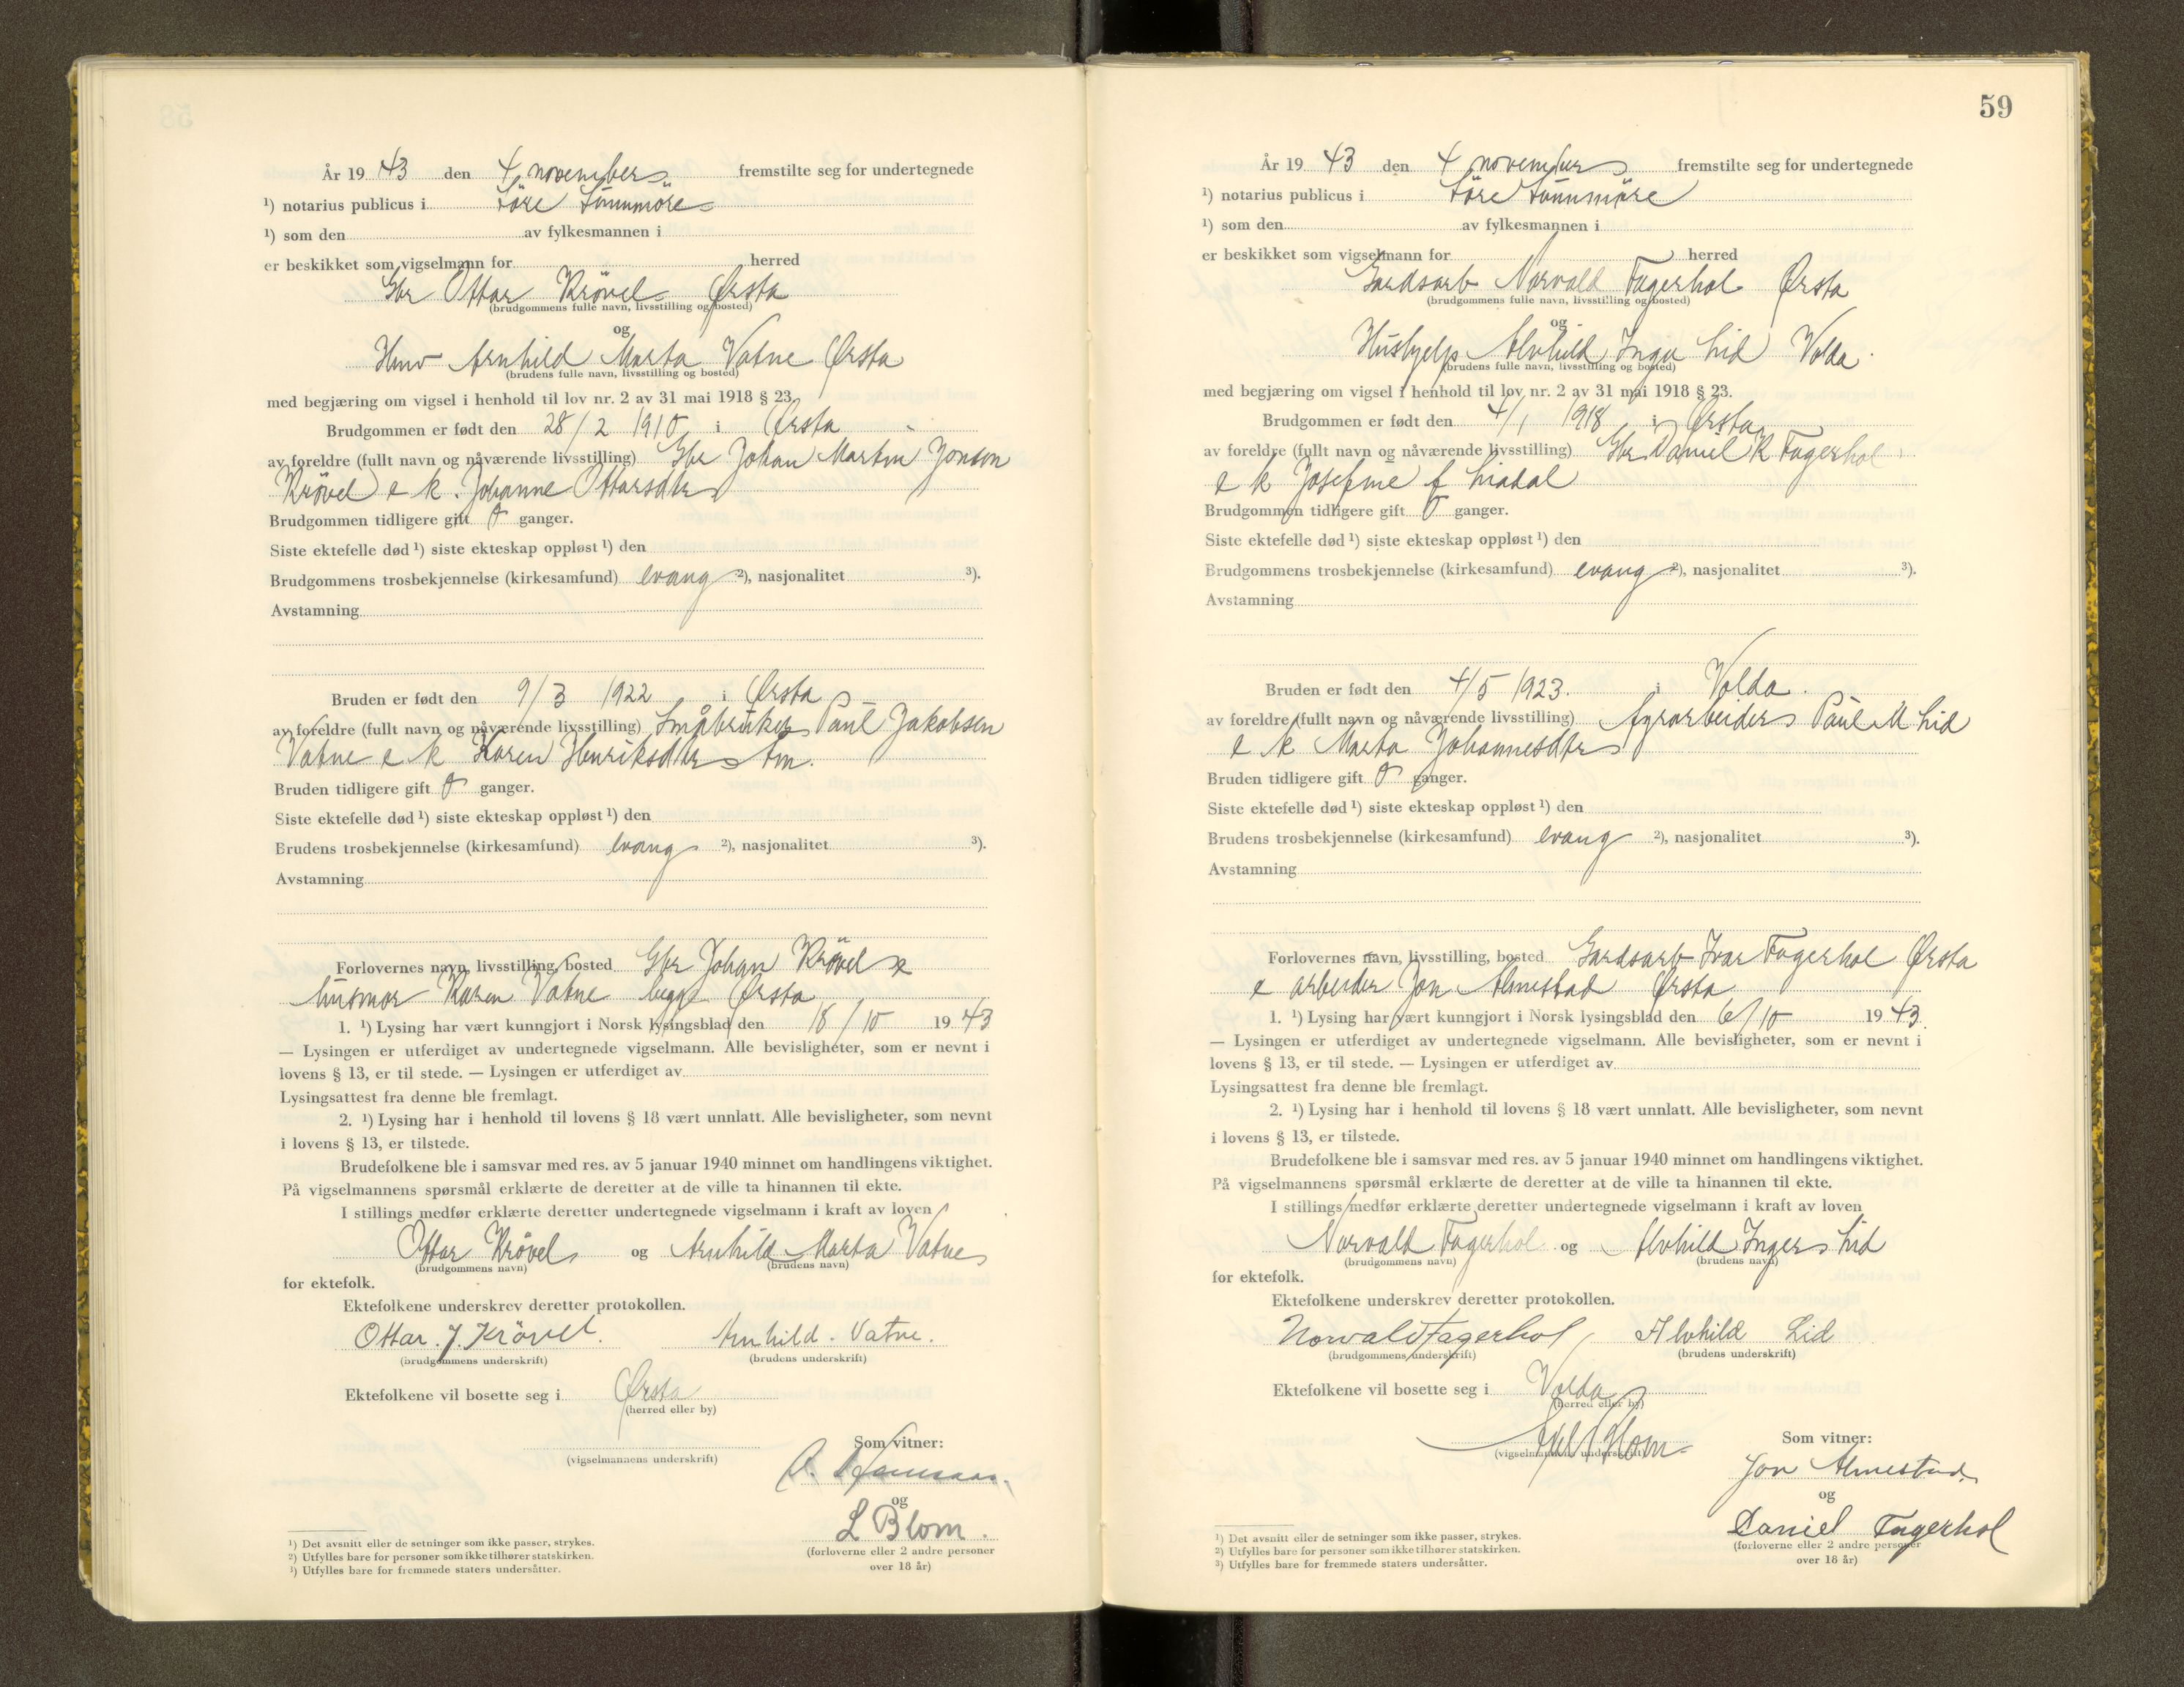 År 19 43 den 4 november fremstilte seg for undertegnede
¹) notarius publicus i Söre Sunnmöre
¹) som den av fylkesmannen i
er beskikket som vigselmann for herred
Gbr Ottar Krövel Ørsta
(brudgommens fulle navn, livsstilling og bosted)
og
Arnhild Marta Vatne Ørsta
(brudens fulle navn, livsstilling og bosted)
med begjæring om vigsel i henhold til lov nr. 2 av 31 mai 1918 § 23.
Brudgommen er født den 28/2 1910 i Ørsta
av foreldre (fullt navn og nåværende livsstilling) Gbr Johan Martin Jonsen
Krövel e k. Johanne Ottarsdtr
Brudgommen tidligere gift 0 ganger.
Siste ektefelle død ¹) siste ekteskap oppløst ¹) den
Brudgommens trosbekjennelse (kirkesamfund) evang ²), nasjonalitet ³).
Avstamning
Bruden er født den 9/3 1922 i Ørsta
av foreldre (fullt navn og nåværende livsstilling) Småbruker Paul Jakobsen
Vatne e k Karen Henriksdtr
Bruden tidligere gift 0 ganger.
Siste ektefelle død ¹) siste ekteskap oppløst ¹) den
Brudens trosbekjennelse (kirkesamfund) evang ²), nasjonalitet ³).
Avstamning
Forlovernes navn, livsstilling, bosted Gbr Johan Krövel e
husmor Karen Vatne begge Ørsta
1. ¹) Lysing har vært kunngjort i Norsk lysingsblad den 18/10 19 43
— Lysingen er utferdiget av undertegnede vigselmann. Alle bevisligheter, som er nevnt i
lovens § 13, er til stede. — Lysingen er utferdiget av
Lysingsattest fra denne ble fremlagt.
2. ¹) Lysing har i henhold til lovens § 18 vært unnlatt. Alle bevisligheter, som nevnt
i lovens § 13, er tilstede.
Brudefolkene ble i samsvar med res. av 5 januar 1940 minnet om handlingens viktighet.
På vigselmannens spørsmål erklærte de deretter at de ville ta hinannen til ekte.
I stillings medfør erklærte deretter undertegnede vigselmann i kraft av loven
Ottar Krövel og Arnhild Marta Vatne
(brudgommens navn) (brudens navn)
for ektefolk.
Ektefolkene underskrev deretter protokollen.
Ottar. J. Krövel. Arnhild. Vatne.
(brudgommens underskrift) (brudens underskrift)
Ektefolkene vil bosette seg i Ørsta
(herred eller by)
Som vitner:
(vigselmannens underskrift)
og
L Blom.
(forloverne eller 2 andre personer
over 18 år)
¹) Det avsnitt eller de setninger som ikke passer, strykes.
²) Utfylles bare for personer som ikke tilhører statskirken.
³) Utfylles bare for fremmede staters undersåtter.
59
År 19 43 den 4 november fremstilte seg for undertegnede
¹) notarius publicus i Söre Sunnmöre
¹) som den av fylkesmannen i
er beskikket som vigselmann for herred
Gardsarb Norvald Fagerhol Ørsta
(brudgommens fulle navn, livsstilling og bosted)
og
Hushjelp Alvhild Inga Lid Volda
(brudens fulle navn, livsstilling og bosted)
med begjæring om vigsel i henhold til lov nr. 2 av 31 mai 1918 § 23.
Brudgommen er født den 4/1 1918 i Ørsta
av foreldre (fullt navn og nåværende livsstilling) Gbr Daniel R Fagerhol
e k Josefine f Liadal
Brudgommen tidligere gift 0 ganger.
Siste ektefelle død ¹) siste ekteskap oppløst ¹) den
Brudgommens trosbekjennelse (kirkesamfund) evang ²), nasjonalitet ³).
Avstamning
Bruden er født den 4/5 1923. i Volda.
av foreldre (fullt navn og nåværende livsstilling) Paul M Lid
e k Marta Johannesdtr
Bruden tidligere gift 0 ganger.
Siste ektefelle død ¹) siste ekteskap oppløst ¹) den
Brudens trosbekjennelse (kirkesamfund) evang ²), nasjonalitet ³).
Avstamning
Forlovernes navn, livsstilling, bosted Gardsarb Ivar Fagerhol Ørsta
e arbeider Jon Almestad Ørsta
1. ¹) Lysing har vært kunngjort i Norsk lysingsblad den 6/10 19 43.
— Lysingen er utferdiget av undertegnede vigselmann. Alle bevisligheter, som er nevnt i
lovens § 13, er til stede. — Lysingen er utferdiget av
Lysingsattest fra denne ble fremlagt.
2. ¹) Lysing har i henhold til lovens § 18 vært unnlatt. Alle bevisligheter, som nevnt
i lovens § 13, er tilstede.
Brudefolkene ble i samsvar med res. av 5 januar 1940 minnet om handlingens viktighet.
På vigselmannens spørsmål erklærte de deretter at de ville ta hinannen til ekte.
I stillings medfør erklærte deretter undertegnede vigselmann i kraft av loven
Norvald Fagerhol og Alvhild Inger Lid
(brudgommens navn) (brudens navn)
for ektefolk.
Ektefolkene underskrev deretter protokollen.
Norvald Fagerhol Alvhild Lid
(brudgommens underskrift) (brudens underskrift)
Ektefolkene vil bosette seg i Volda
(herred eller by)
Blom
(vigselmannens underskrift)
Som vitner:
Jon Almestad.
og
Daniel Fagerhol
(forloverne eller 2 andre personer
over 18 år)
¹) Det avsnitt eller de setninger som ikke passer, strykes.
²) Utfylles bare for personer som ikke tilhører statskirken.
³) Utfylles bare for fremmede staters undersåtter.